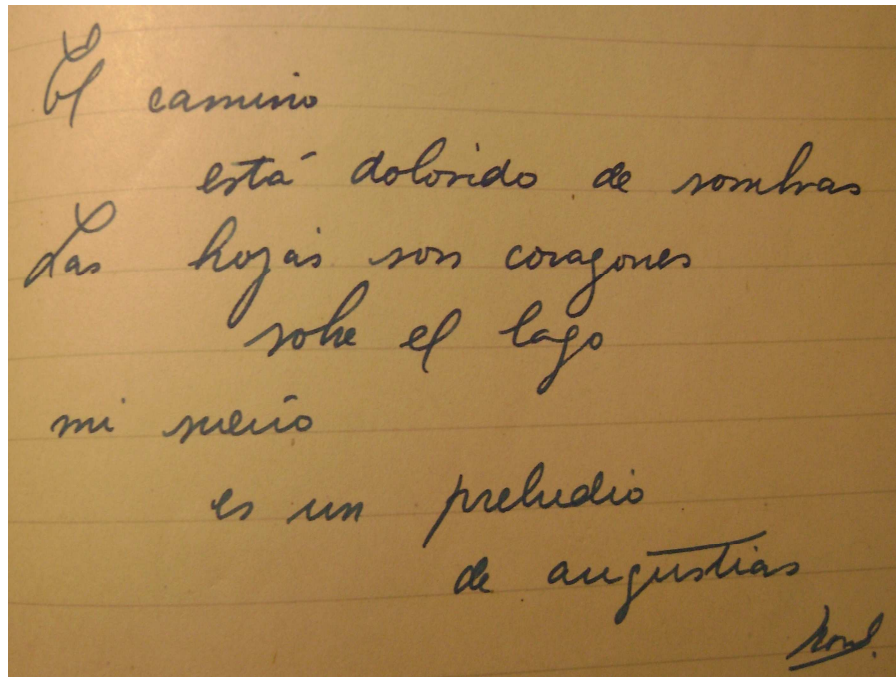 El camino
está dolorido de sombras
Las hojas son corazones
sobre el lago
mi sueño
es un preludio
de angustias